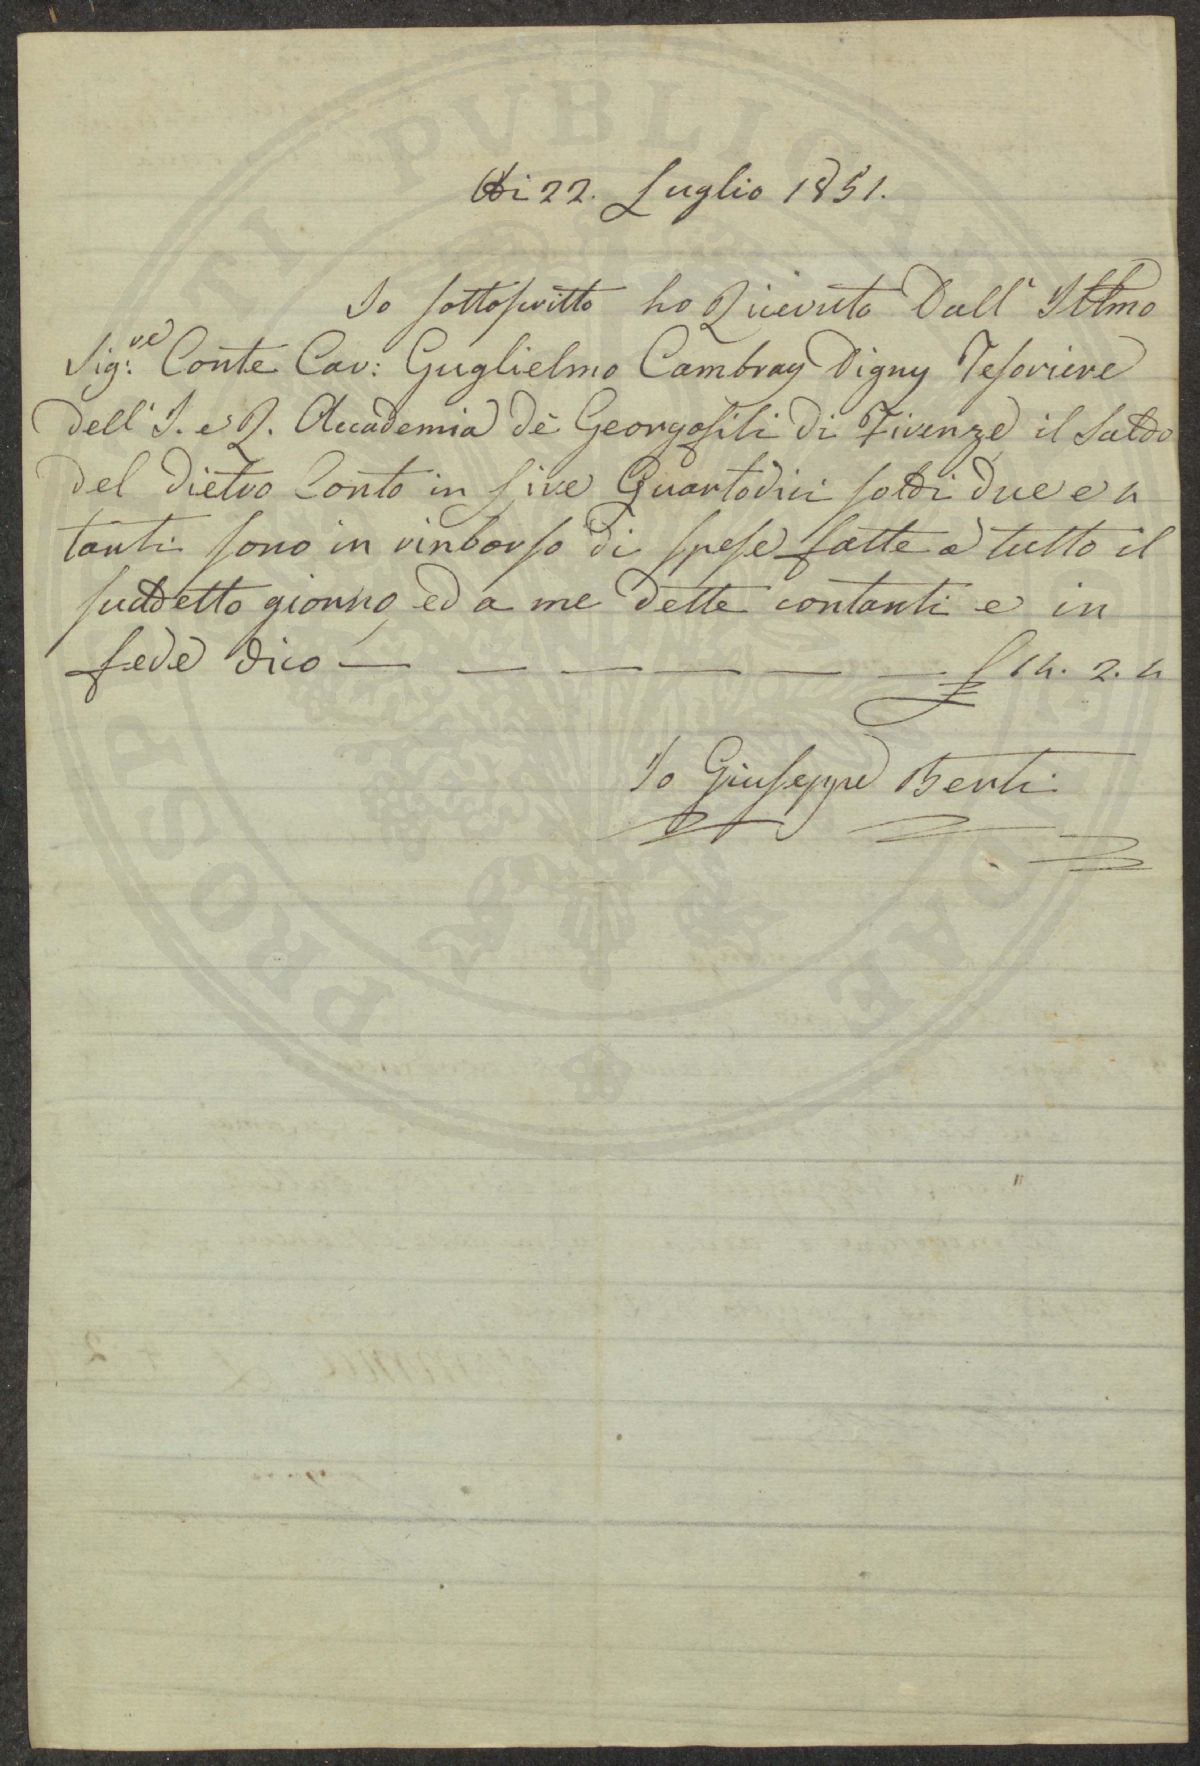 Adi 22. Luglio 1851.
Io sottoscritto ho Ricevuto Dall' Illmo
Sig:re Conte Cav: Guglielmo Cambray Digny Tesoriere
dell' I. e R. Accademia dè Georgofili di Firenze il Saldo
del dietro Conto in Lire Quartodici soldi due e 4
tanti sono in rinborso di spese fatte a tutto il
suddetto giorno ed a me dette contanti e in
fede dico — — — — — — £ 14. 2. 4
Io Giuseppe Berti
PROSPERITATI PUBLICAE AUGENDAE